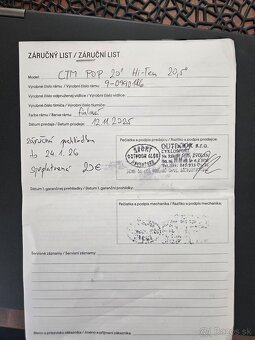 ZÁRUČNÝ LIST / ZÁRUČNÍ LIST
Model: CTM POP 20" Hi-Ten 20,5"
Výrobné číslo rámu / Výrobní číslo rámu:
Výrobné číslo odpruženej vidlice / Výrobní číslo vidlice:
Výrobné číslo tlmiča / Výrobní číslo tlumiče:
Farba rámu / Barva rámu:
Dátum predaja / Datum prodeje: 12.11.2025
Pečiatka a podpis predajcu / Razítko a podpis prodejce:
záručná prehliadka
do 24.1.26
spoplatnená 20€
SPORT
OUTDOOR s.r.o.
Dátum 1. garančnej prehliadky / Datum 1. garanční prohlídky:
Pečiatka a podpis mechanika / Razítko a podpis mechanika:
Servisné záznamy / Servisní záznamy:
Meno a priezvisko zákazníka / Jméno a příjmení zákazníka:
bazos.sk